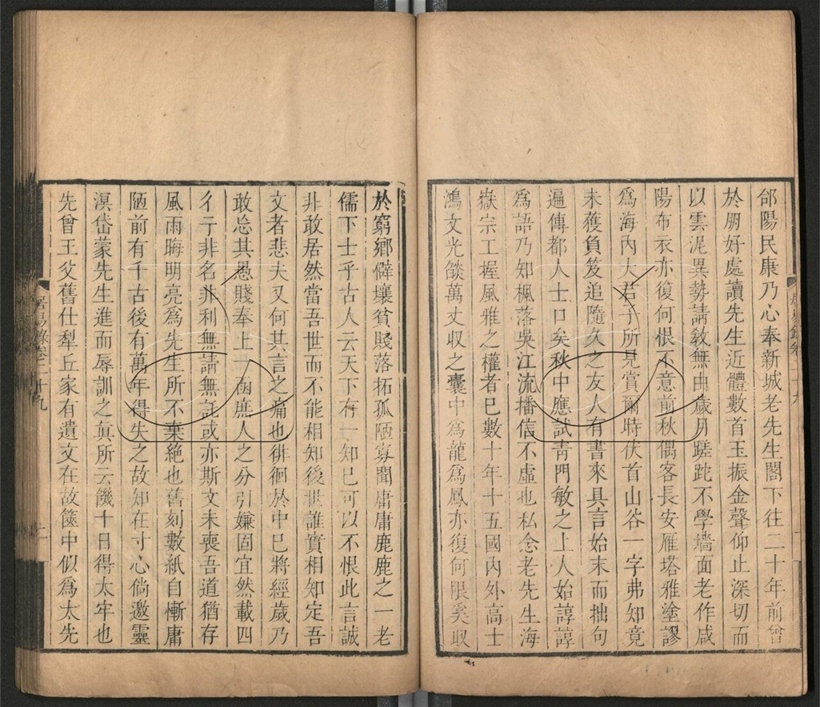 郃陽民康乃心奉新城老先生閣下往二十年前曾
於朋好處讀先生近體數首玉振金聲仰止深切而
以雲泥異勢請敎無由歲月蹉跎不學墻面老作咸
陽布衣亦復何恨不意前秋偶客長安雁塔雅塗謬
爲海內大君子所見賞爾時伏首山谷一字弗知竟
未獲負笈追隨久之友人有書來具言始末而拙句
遍傳都人士口矣秋中應試靑門敏之上人始諄諄
爲語乃知楓落吳江流播信不虛也私念老先生海
嶽宗工握風雅之權者已數十年十五國內外高士
鴻文光燄萬丈収之囊中爲龍爲鳳亦復何限奚取
居易錄卷二十九
於窮鄉僻壤貧賤落拓孤陋寡聞庸庸鹿鹿之一老
儒下士乎古人云天下有一知已可以不恨此言誠
非敢居然當吾世而不能相知後世誰實相知定吾
文者悲夫又何其言之痛也徘徊於中已將經歲乃
敢忘其愚賤奉上一函庶人之分引嫌固宜然載四
名非利無請無託或亦斯文未喪吾道猶存
風雨晦明亮爲先生所不棄絶也舊刻數紙自慚庸
陋前有千古後有萬年得失之故知在寸心倘邀靈
溟岱蒙先生進而辱訓之眞所云饑十日得太牢也
先曾王父舊仕犁丘家有遺文在故篋中似爲太先
居易錄卷二十九